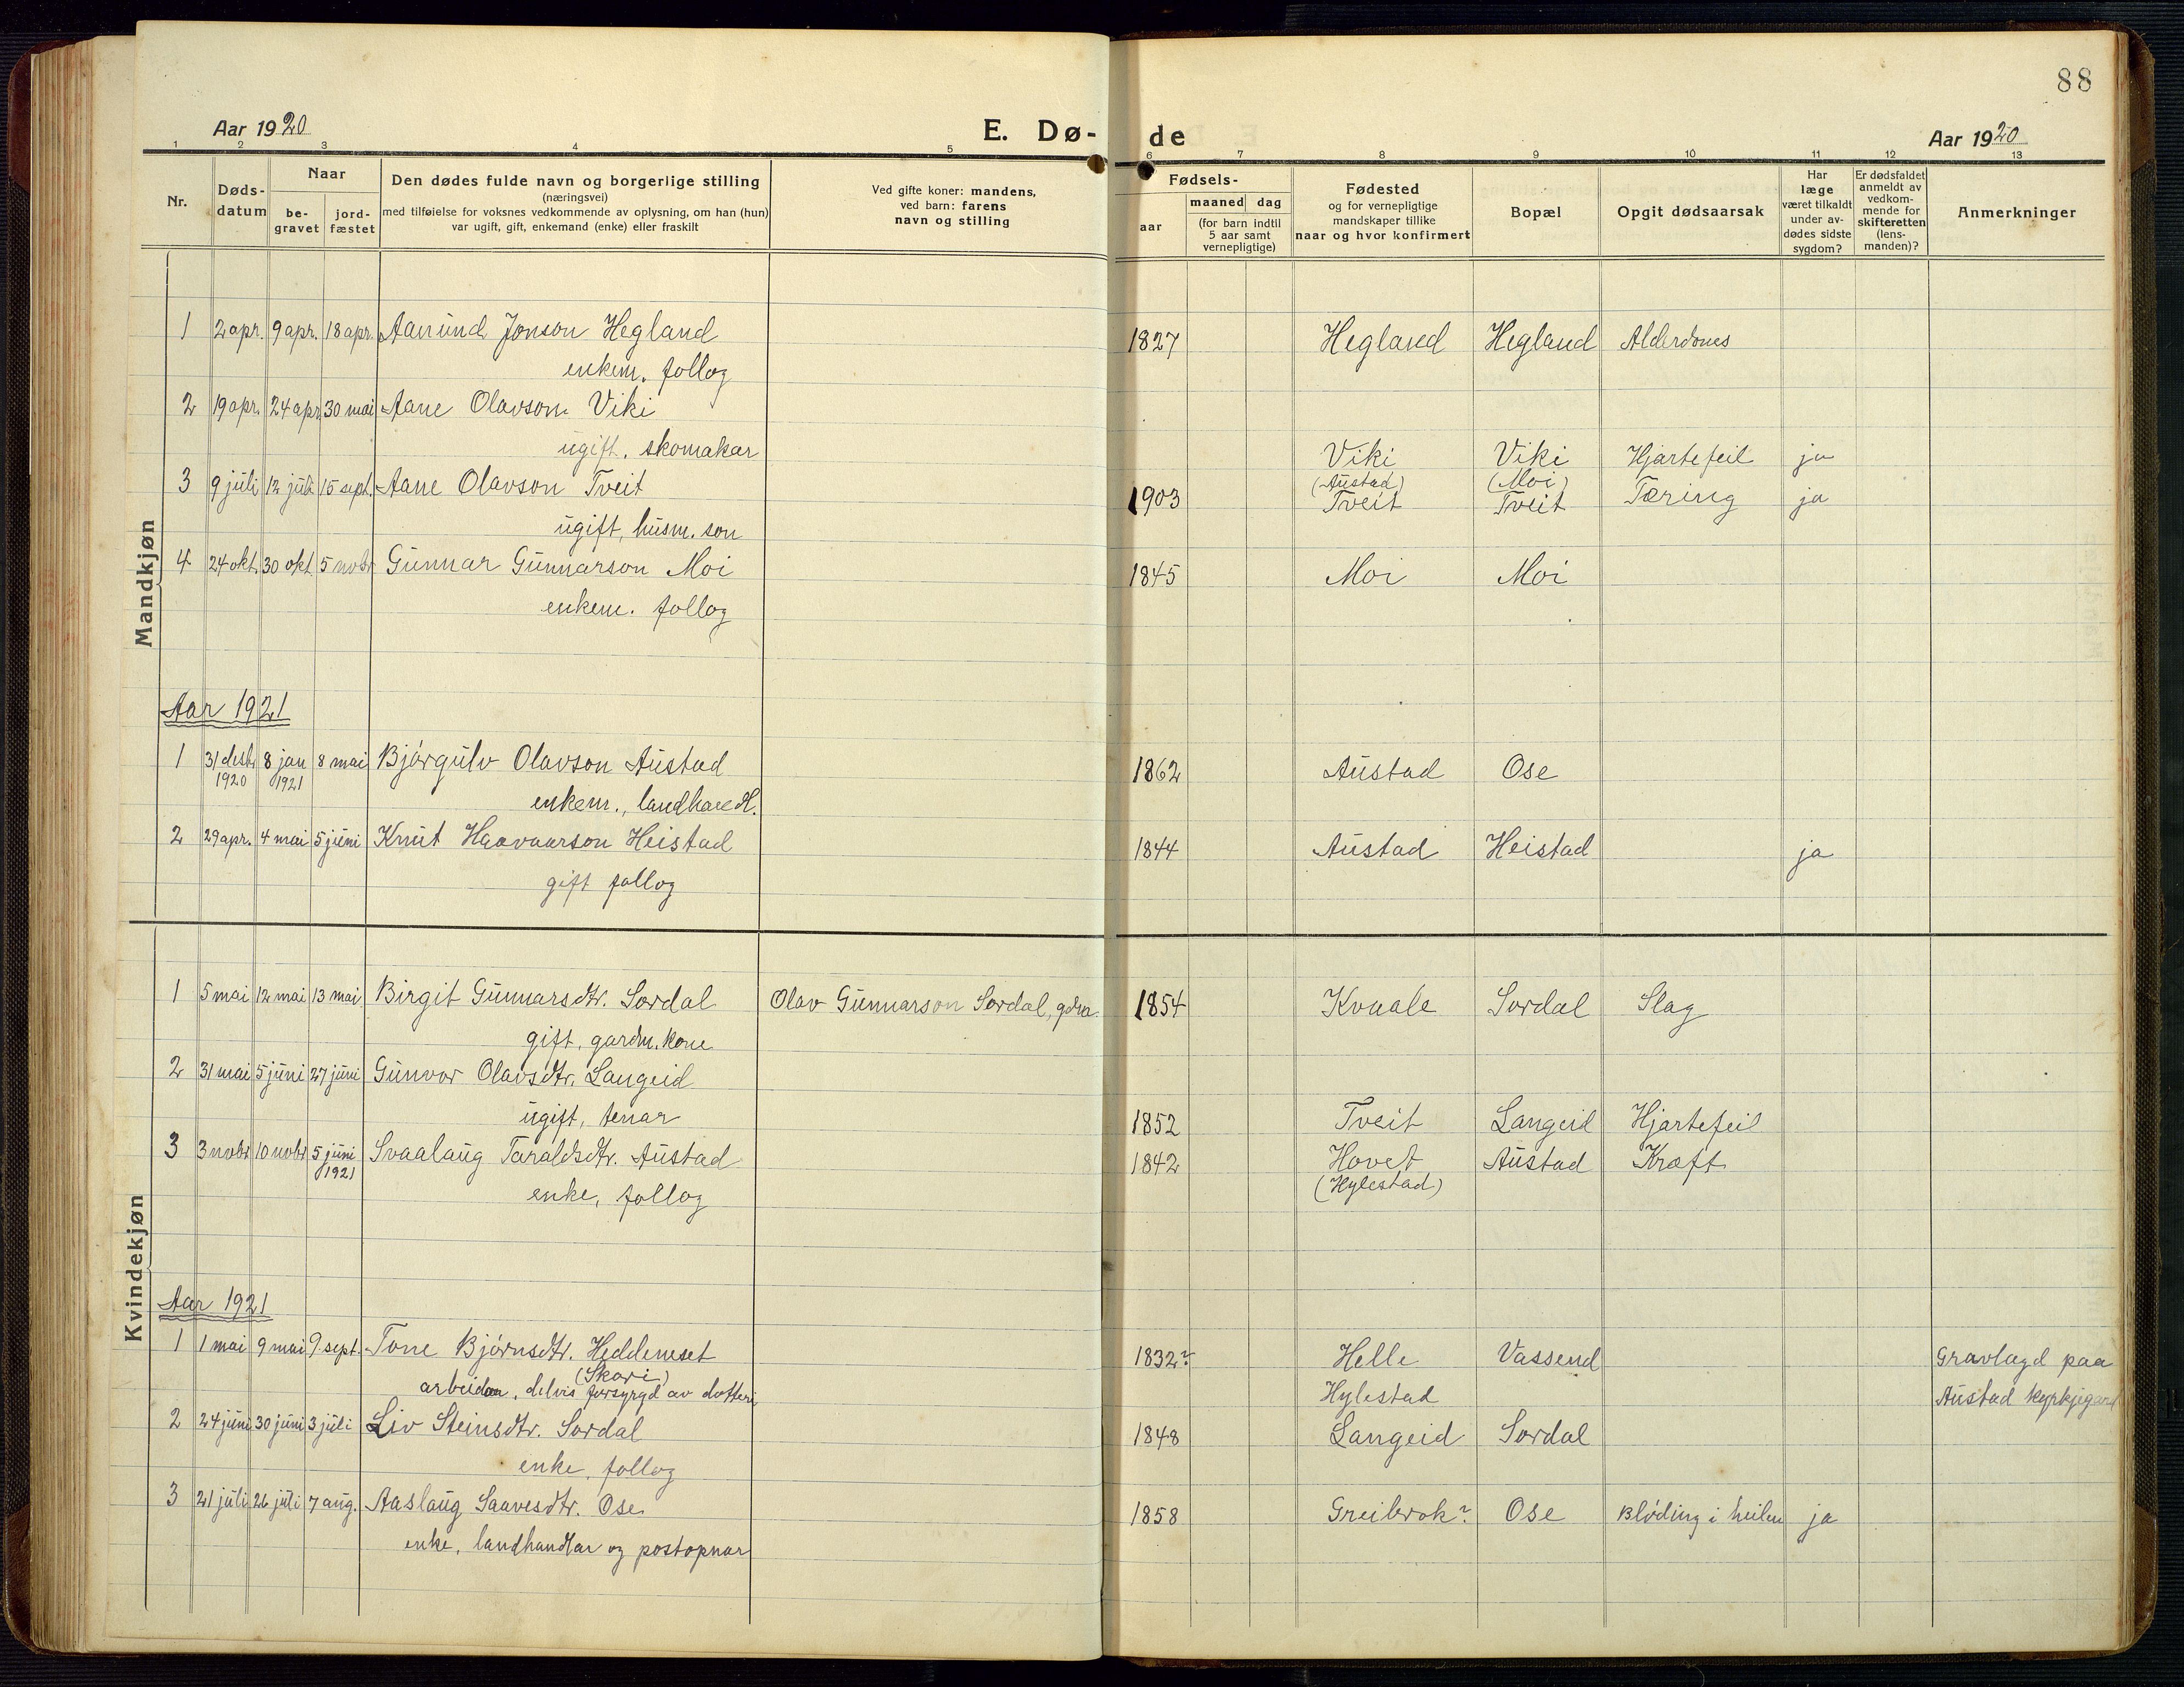 88
Aar 1920
E. Dø-
de
Aar 1920
1 2 3 4 5 6 7 8 9 10 11 12 13
Nr.
Døds-
datum
Naar
be-
gravet
jord-
fæstet
Den dødes fulde navn og borgerlige stilling
(næringsvei)
med tilføielse for voksnes vedkommende av oplysning, om han (hun)
var ugift, gift, enkemand (enke) eller fraskilt
Ved gifte koner: mandens,
ved barn: farens
navn og stilling
Fødsels-
aar
maaned dag
(for barn indtil
5 aar samt
vernepligtige)
Fødested
og for vernepligtige
mandskaper tillike
naar og hvor konfirmert
Bopæl
Opgit dødsaarsak
Har
læge
været tilkaldt
under av-
dødes sidste
sygdom?
Er dødsfaldet
anmeldt av
vedkom-
mende for
skifteretten
(lens-
manden)?
Anmerkninger
Mandkjøn
1 2 apr. 9 apr. 18 apr. Aanund Jonson Hegland 1827 Hegland Hegland Alderdoms
enkem. follog
2 19 apr. 24 apr. 30 mai Aane Olavson Viki
ugift, skomakar Viki Viki Hjartefeil ja
(Austad) (Moi)
3 9 juli 12 juli 15 sept. Aane Olavson Tveit 1903 Tveit Tveit Tæring ja
ugift, husm. son
4 24 okt. 30 okt. 5 nobr Gunnar Gunnarson Moi 1845 Moi Moi
enkem. follog
Aar 1921
1 31 desbr 8 jan 8 mai Bjørgulv Olavson Austad 1862 Austad Ose
1920 1921
enkem., landhandl.
2 29 apr. 4 mai 5 juni Knut Haavaarson Heistad 1844 Austad Heistad ja
gift follog
Kvindekjøn
1 5 mai 12 mai 13 mai Birgit Gunnarsdtr. Sordal Olav Gunnarson Sordal, gdm. 1854 Kvaale Sordal Slag
gift, gardm. kone
2 31 mai 5 juni 27 juni Gunvor Olavsdtr. Langeid
ugift, tenar 1852 Tveit Langeid Hjartefeil
3 3 nobr 10 nobr 5 juni Svaalaug Taraldsdtr. Austad 1842 Hovet Austad Kræft
1921
enke, follog (Hylestad)
Aar 1921
1 1 mai 9 mai 9 sept. Tone Bjørnsdtr. Heddeneset 1832? Helle Vassend Gravlagd paa
(Skori)
arbeidar, delvis forsyrgd av dotteri Hylestad Austad kyrkjegard
2 24 juni 30 juni 3 juli Liv Steinsdtr. Sordal 1848 Langeid Sordal
enke, follog
3 21 juli 26 juli 7 aug. Aaslaug Saavesdtr. Ose 1858 Greibrok? Ose Bløding i heilen ja
enke, landhandlar og postopnar